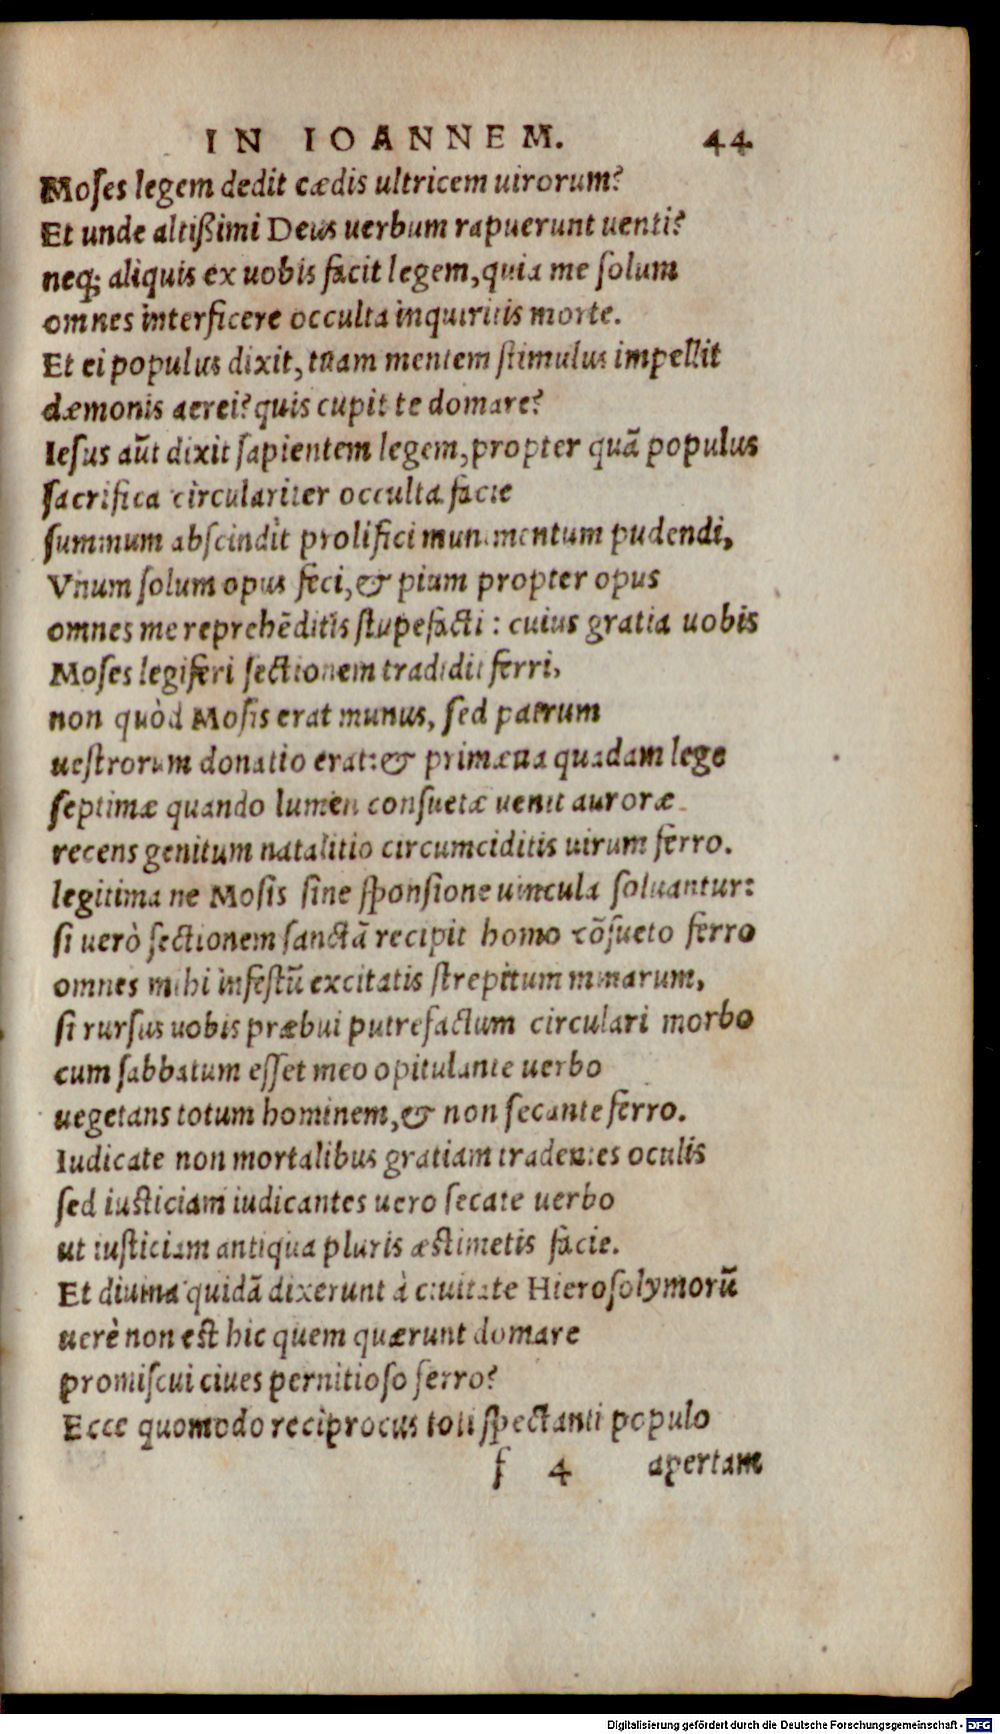 IN IOANNEM. 44
Moses legem dedit cædis ultricem uirorum?
Et unde altißimi Deus uerbum rapuerunt uenti?
neq; aliquis ex uobis facit legem, quia me solum
omnes interficere occulta inquiritis morte.
Et ei populus dixit, tuam mentem stimulus impellit
dæmonis aerei? quis cupit te domare?
Iesus aūt dixit sapientem legem, propter quā populus
sacrifica circulariter occulta facie
summum abscindit prolifici munimentum pudendi,
Vnum solum opus feci, & pium propter opus
omnes me reprehēditis stupefacti: cuius gratia uobis
Moses legiferi sectionem tradidit ferri,
non quòd Mosis erat munus, sed patrum
uestrorum donatio erat: & primæua quadam lege
septimæ quando lumen consuetæ uenit auroræ
recens genitum natalitio circumciditis uirum ferro.
legitima ne Mosis sine sponsione uincula soluantur:
si uerò sectionem sanctā recipit homo cōsueto ferro
omnes mihi infestū excitatis strepitum minarum,
si rursus uobis præbui putrefactum circulari morbo
cum sabbatum esset meo opitulante uerbo
uegetans totum hominem, & non secante ferro.
Iudicate non mortalibus gratiam tradentes oculis
sed iusticiam iudicantes uero secate uerbo
ut iusticiam antiqua pluris æstimetis facie.
Et diuina quidā dixerunt à ciuitate Hierosolymorū
uerè non est hic quem quærunt domare
promiscui ciues pernitioso ferro?
Ecce quomodo reciprocus toti spectanti populo
f 4 apertam
Digitalisierung gefördert durch die Deutsche Forschungsgemeinschaft - DFG